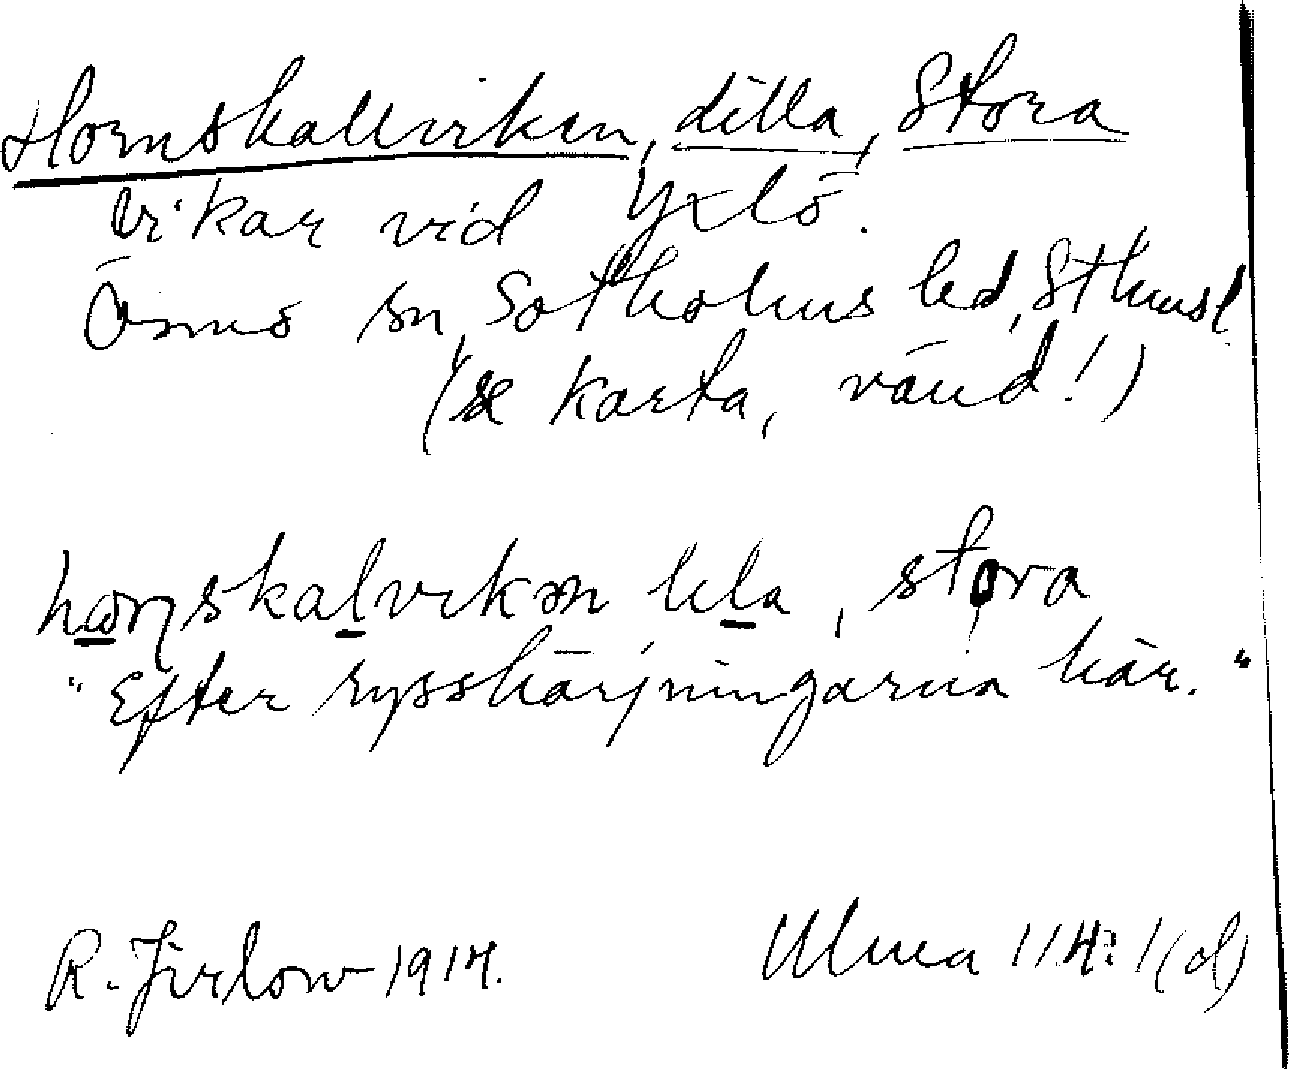 Hornskallviken, Lilla, Stora
vikar vid Yxlö.
Ösmo sn, Sotholms hd, Sthmsl.
(se karta, vänd!)
hornskalvikən lila, stora
"Efter rysshärjningarna här."
R. Jirlow 1914.
Ulma 114:1(d)